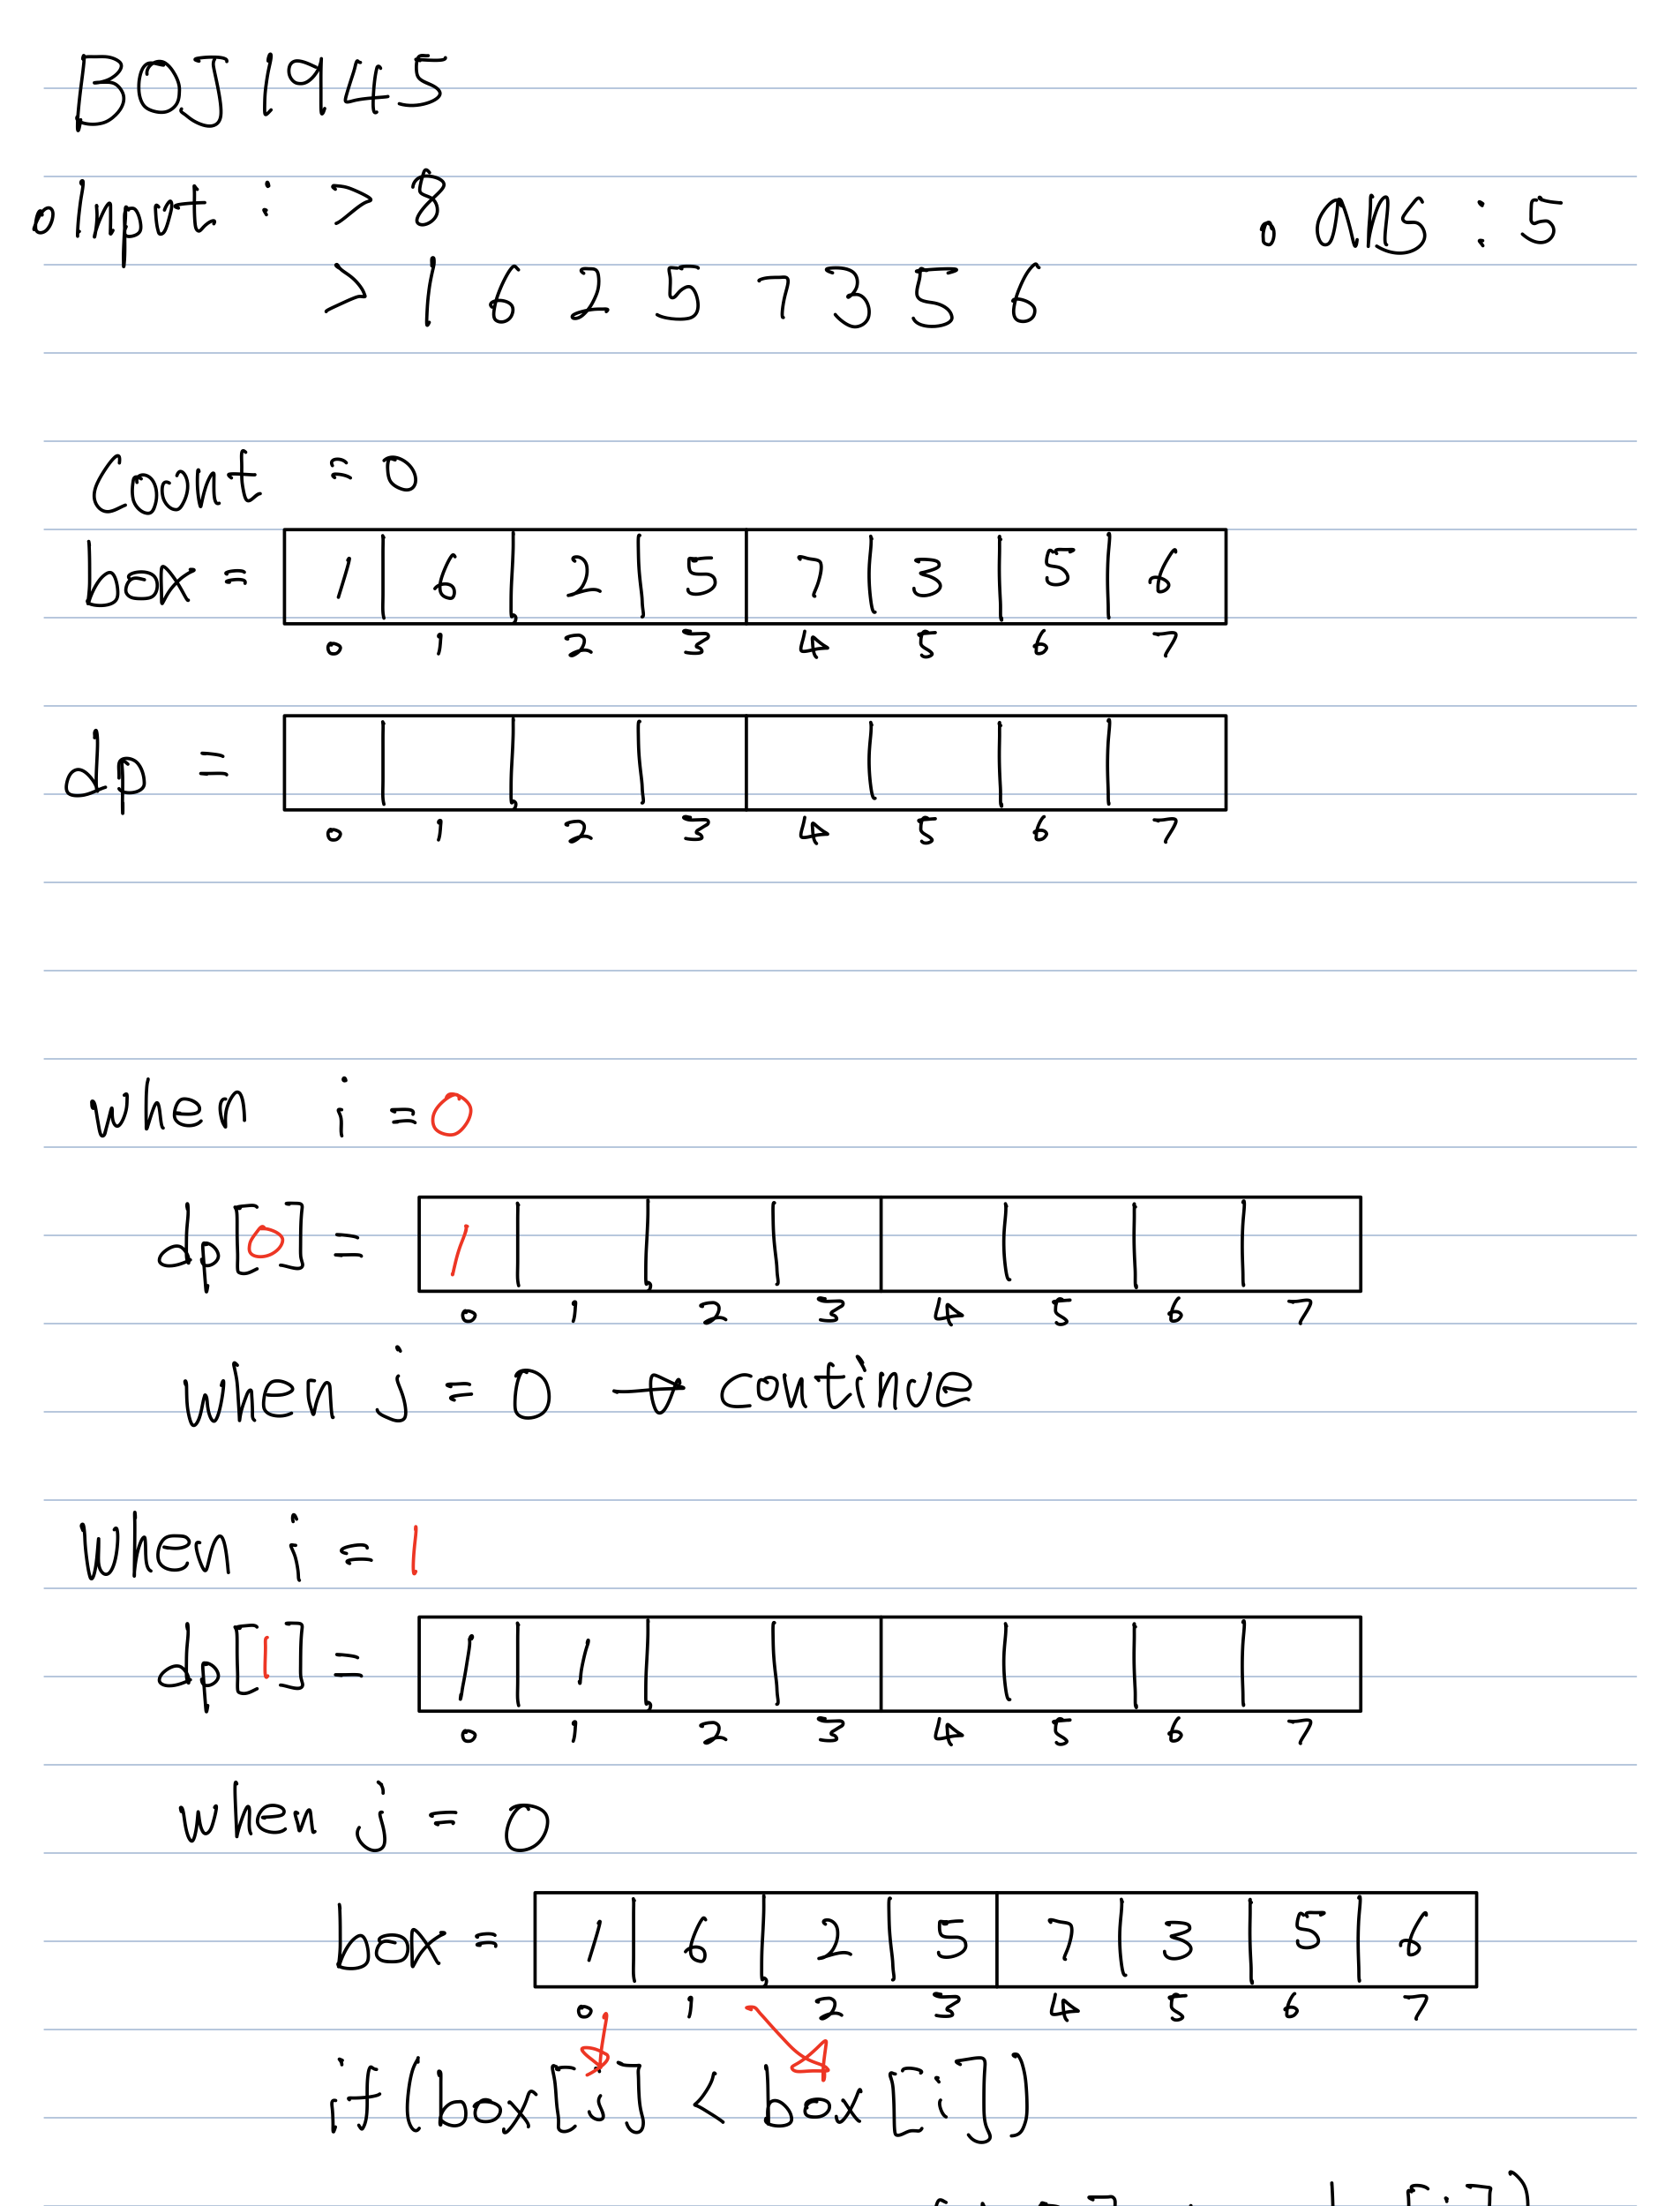 BOJ1945
o Input : > 8
o ans : 5
> 1 6 2 5 7 3 5 6
Count = 0
box = 1 6 2 5 7 3 5 6
0 1 2 3 4 5 6 7
dp =
0 1 2 3 4 5 6 7
when i = 0
dp[0] = 1
0 1 2 3 4 5 6 7
when j = 0 → continue
when i = 1
dp[1] = 1 1
0 1 2 3 4 5 6 7
when j = 0
box = 1 6 2 5 7 3 5 6
0 1 2 3 4 5 6 7
if(box[j] < box[i])